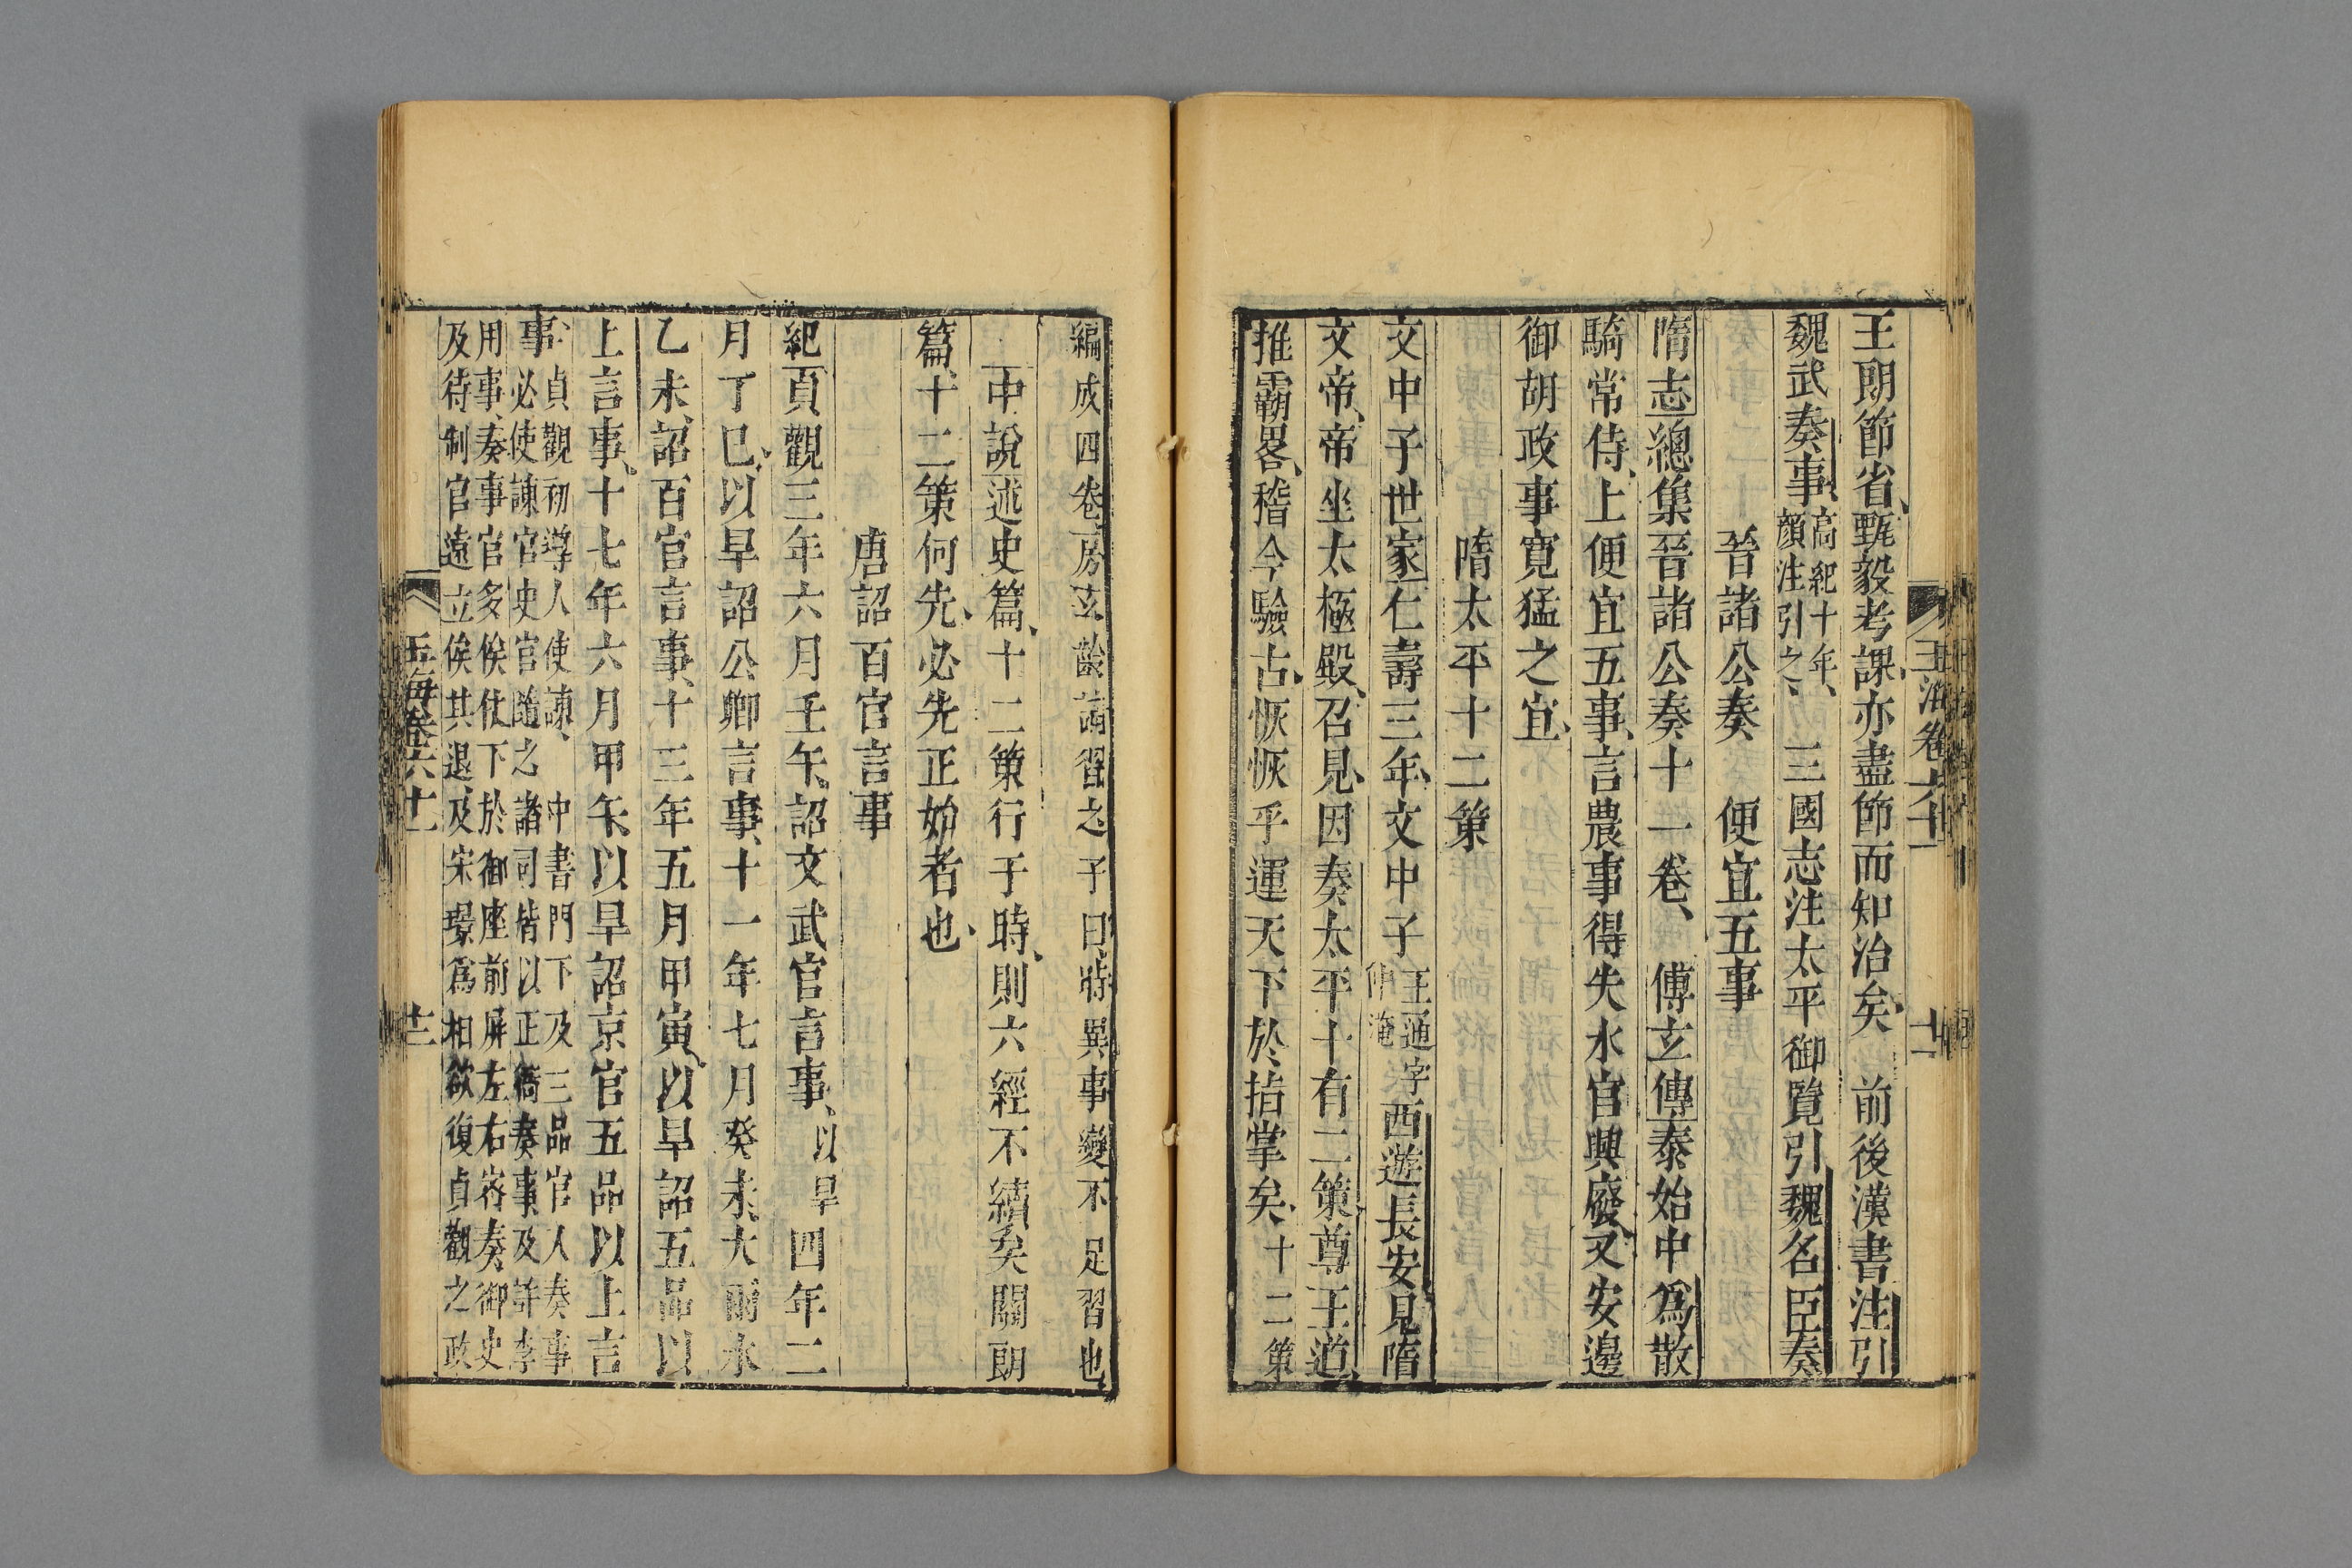 玉海卷六十一 十一
王朗節省甄毅考課亦盡節而知治矣 前後漢書注引
魏武奏事高紀十年、顏注引之、三國志注太平御覽引魏名臣奏
晉諸公奏 便宜五事
隋志總集晉諸公奏十一卷、傅玄傳泰始中爲散
騎常侍、上便宜五事、言農事得失水官興廢又安邊
御胡政事寬猛之宜、
隋太平十二策
文中子世家仁壽三年、文中子王通字仲淹西遊長安見隋
文帝、帝坐太極殿、召見、因奏太平十有二策、尊王道、
推霸畧、稽今驗古、恢恢乎運天下於指掌矣、十二策
編成四卷、房玄齡請習之子曰、時異事變不足習也、
中說述史篇、十二策行于時、則六經不續矣關朗
篇、十二策何先、必先正始者也、
唐詔百官言事
紀貞觀三年六月壬午、詔文武官言事、以旱四年二
月丁巳、以旱詔公卿言事、十一年七月癸未、大雨水
乙未、詔百官言事、十三年五月甲寅、以旱詔五品以
上言事、十七年六月甲午以旱詔京官五品以上言
事、貞觀初導人使諫、中書門下及三品官人奏事
必使諫官史官隨之諸司皆以正衙奏事、及許李
用事、奏事官多俟仗下於御座前屏左右密奏御史
及待制官遠立俟其退、及宋璟爲相欲復貞觀之政
玉海卷六十一 十二